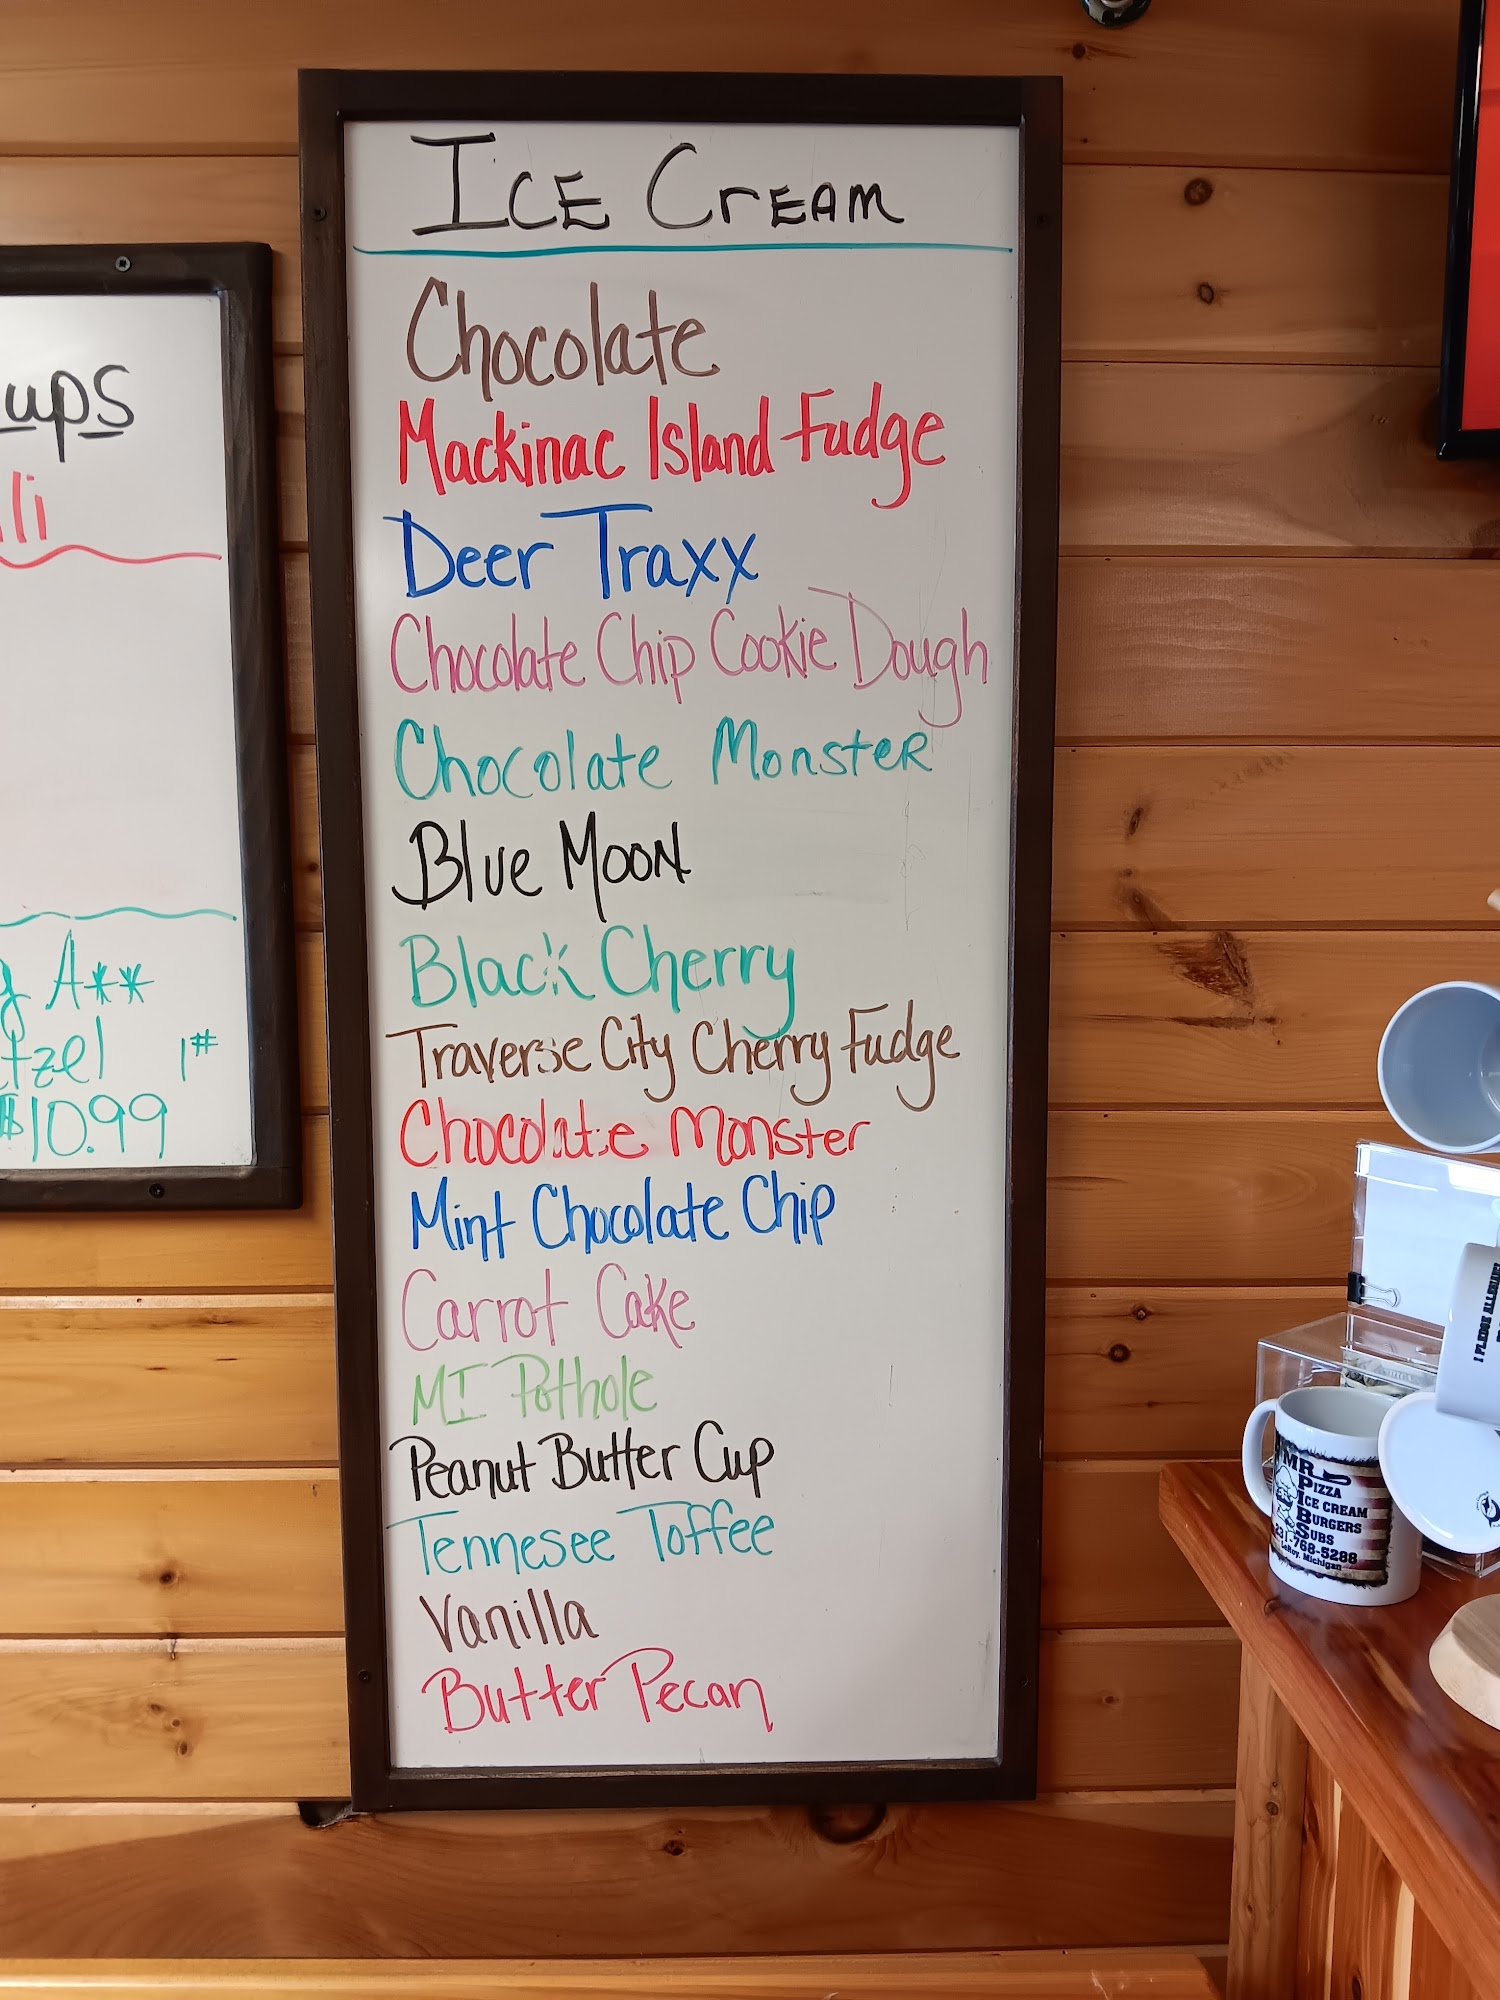 ICE CREAM
Chocolate
Mackinac Island Fudge
Deer Traxx
Chocolate Chip Cookie Dough
Chocolate Monster
Blue Moon
Black Cherry
Traverse City Cherry Fudge
Chocolate Monster
Mint Chocolate Chip
Carrot Cake
MI Pothole
Peanut Butter Cup
Tennesee Toffee
Vanilla
Butter Pecan
A**
1#
$10.99
MR
PIZZA
ICE CREAM
BURGERS
SUBS
231-768-5288
LeRoy, Michigan
I PLEDGE ALLEGIANCE